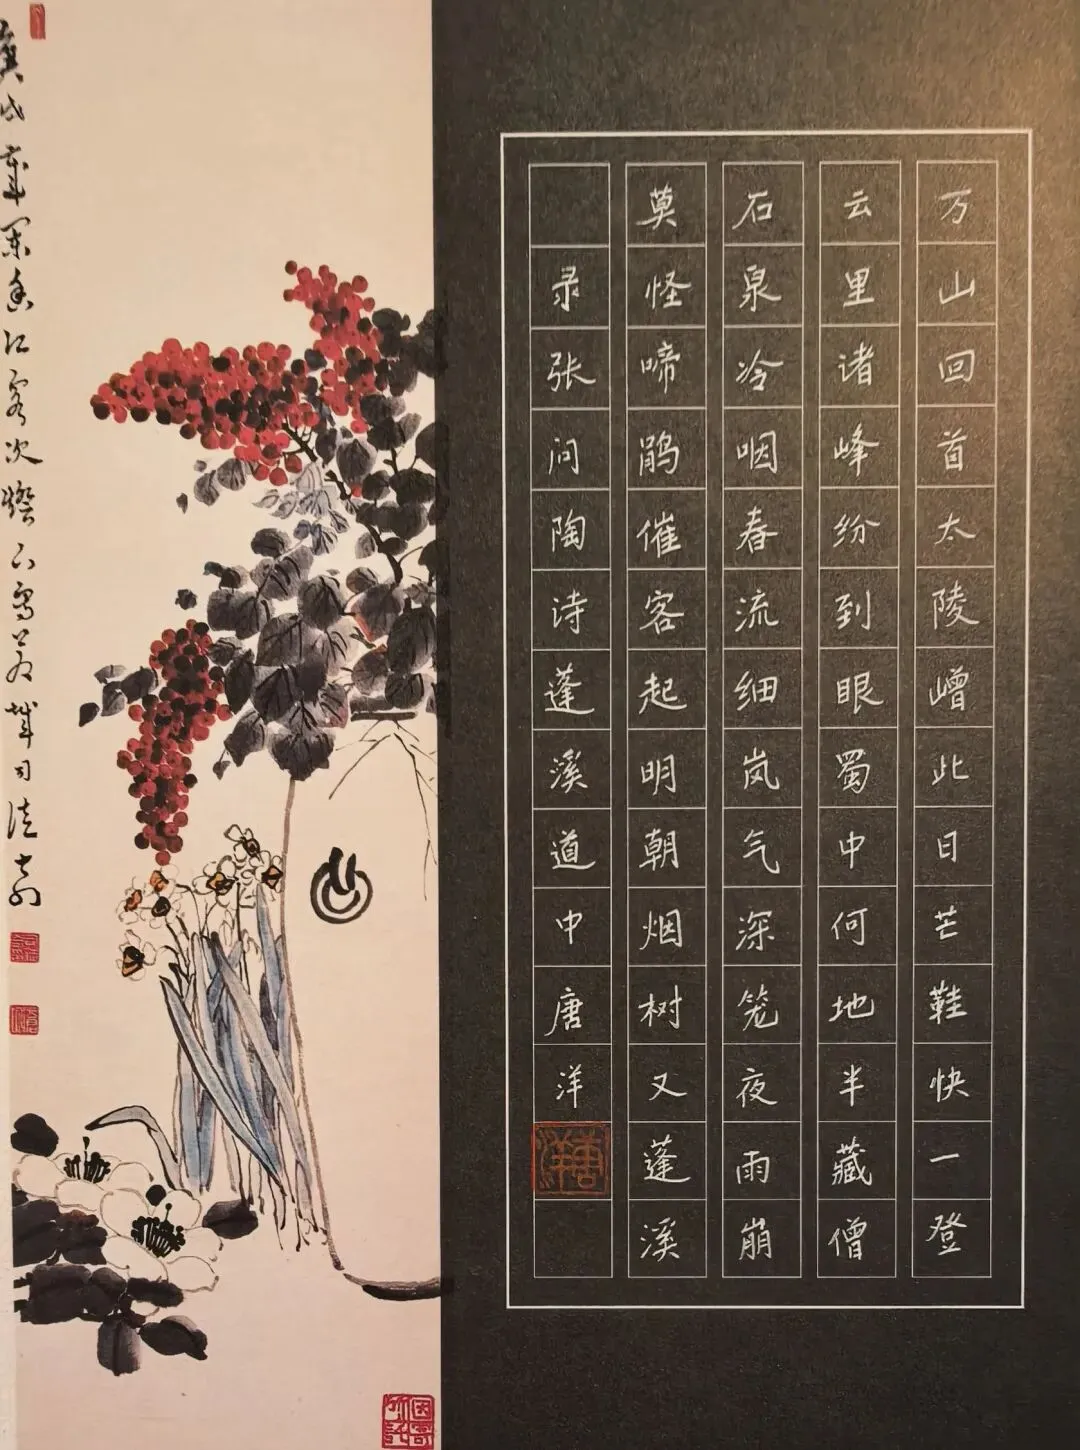 万山回首太陵嶒此日芒鞋快一登
云里诸峰纷到眼蜀中何地半藏僧
石泉冷咽春流细岚气深笼夜雨崩
莫怪啼鹃催客起明朝烟树又蓬溪
录张问陶诗蓬溪道中唐洋
唐洋